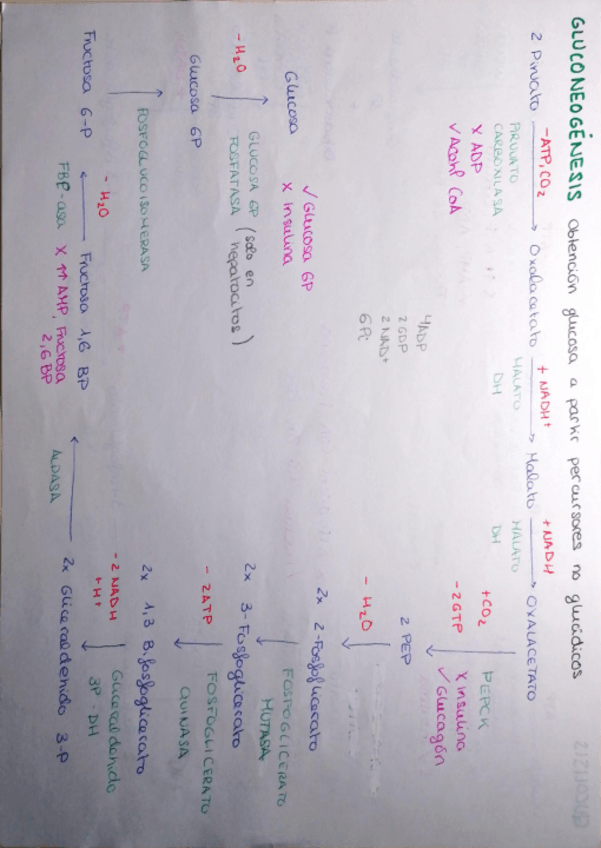 GLUCONEOGÉNESIS Obtención glucosa a partir percursores no glucídicos
2 Piruvato
- ATP, CO2
PIRUVATO
CARBONILASA
X ADP
✓ Acetil CoA
Oxalacetato
+ NADH+
MALATO
DH
Malato
+ NADH
MALATO
DH
OXALACETATO
+ CO2
- 2 GTP
PEPCK
X insulina
✓ Glucagón
2 PEP
- H2O
2x 2-Fosfoglicerato
FOSFOGLICERATO
MUTASA
2x 3-Fosfoglicerato
- 2ATP
FOSFOGLICERATO
QUINASA
2x 1,3 Bifosfoglicerato
- 2 NADH
+ H+
Gliceraldehido
3P - DH
2x Gliceraldehido 3-P
ALDASA
Fructosa 1,6 BP
- H2O
FBP-asa
X ↑↑ AMP, Fructosa
2,6 BP
Fructosa 6-P
FOSFOGLUCOISOMERASA
Glucosa 6P
- H2O
GLUCOSA 6P (solo en
FOSFATASA hepatocitos)
Glucosa
✓ Glucosa 6P
X Insulina
4ADP
2 GDP
2 NAD+
6 Pi